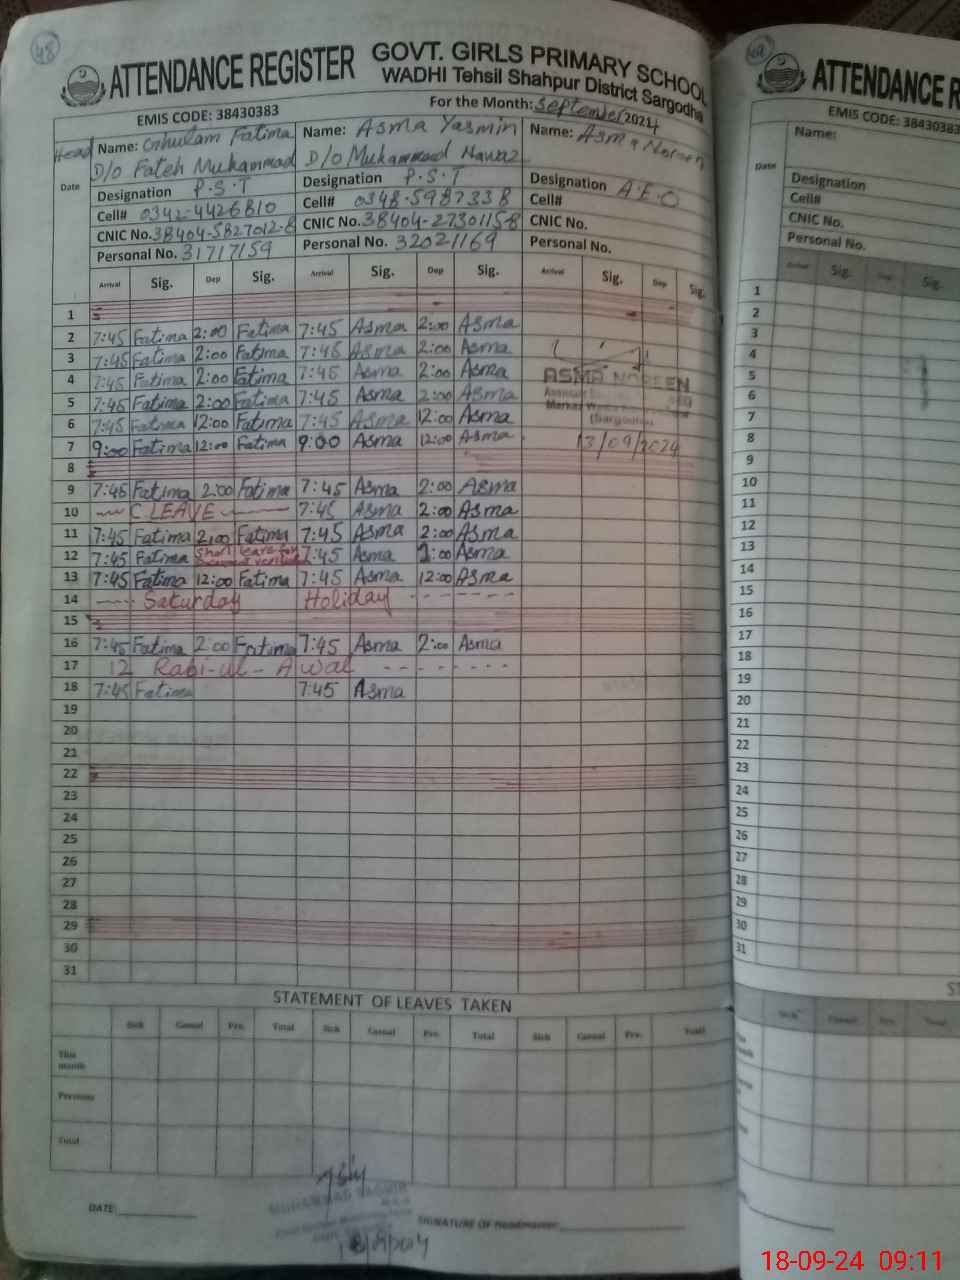 48
ATTENDANCE REGISTER GOVT. GIRLS PRIMARY SCHOOL
WADHI Tehsil Shahpur District Sargodha
EMIS CODE: 38430383 For the Month: September 2024
Head Name: Ghulam Fatima Name: Asma Yasmin Name: Asma Noreen
D/o Fateh Muhammad D/o Muhammad Nawaz
Date Designation P.S.T Designation P.S.T Designation A.E.O
Cell# 0342-4426810 Cell# 0348-5987338 Cell#
CNIC No. 38404-5827012-8 CNIC No. 38404-2730115-8 CNIC No.
Personal No. 31717159 Personal No. 32021169 Personal No.
Arrival Sig. Dep Sig. Arrival Sig. Dep Sig. Arrival Sig. Dep Sig.
1
2 7:45 Fatima 2:00 Fatima 7:45 Asma 2:00 Asma
3 7:45 Fatima 2:00 Fatima 7:45 Asma 2:00 Asma
4 7:45 Fatima 2:00 Fatima 7:45 Asma 2:00 Asma ASMA NOREEN
5 7:45 Fatima 2:00 Fatima 7:45 Asma 2:00 Asma
6 7:45 Fatima 12:00 Fatima 7:45 Asma 12:00 Asma (Sargodha)
7 9:00 Fatima 12:00 Fatima 9:00 Asma 12:00 Asma 13/09/2024
8
9 7:45 Fatima 2:00 Fatima 7:45 Asma 2:00 Asma
10 C LEAVE 7:45 Asma 2:00 Asma
11 7:45 Fatima 2:00 Fatima 7:45 Asma 2:00 Asma
12 7:45 Fatima Short leave for 7:45 Asma :00 Asma
13 7:45 Fatima 12:00 Fatima 7:45 Asma 12:00 Asma
14 Saturday Holiday
15
16 7:45 Fatima 2:00 Fatima 7:45 Asma 2:00 Asma
17 12 Rabi-ul-Awal
18 7:45 Fatima 7:45 Asma
19
20
21
22
23
24
25
26
27
28
29
30
31
STATEMENT OF LEAVES TAKEN
Sick Casual Prv. Total Sick Casual Prv. Total Sick Casual Prv. Total
This month
Previous
Total
DATE: SIGNATURE OF Headmaster:
ATTENDANCE R
EMIS CODE: 38430383
Name:
Date
Designation
Cell#
CNIC No.
Personal No.
Arrival Sig. Dep Sig.
1
2
3
4
5
6
7
8
9
10
11
12
13
14
15
16
17
18
19
20
21
22
23
24
25
26
27
28
29
30
31
ST
Sick Casual Prv. Total
18-09-24 09:11